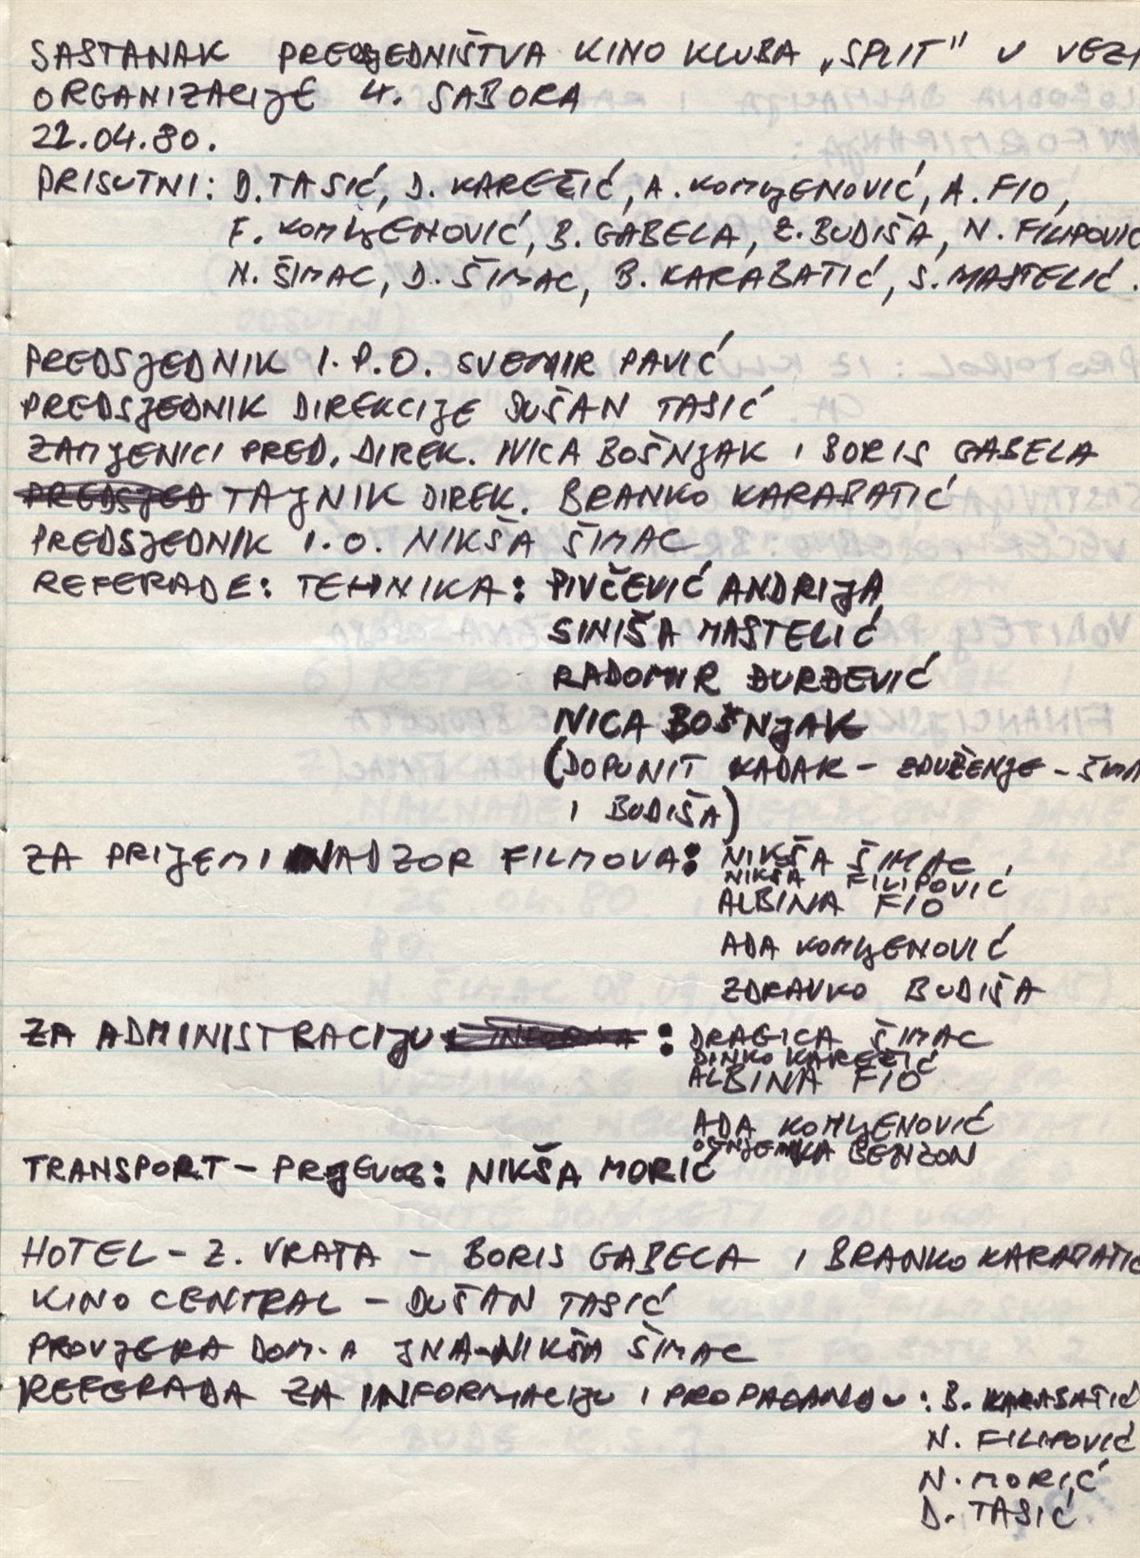 SASTANAK PREDSJEDNIŠTVA KINO KLUBA „SPLIT" U VEZI
ORGANIZACIJE 4. SABORA
22.04.80.
PRISUTNI: D. TASIĆ, D. KAREŽIĆ, A. KOMLJENOVIĆ, A. FIO,
F. KOMLJENOVIĆ, B. GABELA, Z. BUDIŠA, N. FILIPOVIĆ
N. ŠIMAC, D. ŠIMAC, B. KARABATIĆ, S. MASTELIĆ.
PREDSJEDNIK I.P.O. SVEMIR PAVIĆ
PREDSJEDNIK DIREKCIJE DUŠAN TASIĆ
ZAMJENICI PRED. DIREK. IVICA BOŠNJAK I BORIS GABELA
PREDSJED TAJNIK DIREK. BRANKO KARABATIĆ
PREDSJEDNIK I.O. NIKŠA ŠIMAC
REFERADE: TEHNIKA: PIVČEVIĆ ANDRIJA
SINIŠA MASTELIĆ
RADOMIR ĐURĐEVIĆ
IVICA BOŠNJAK
(DOPUNIT KADAR - ZDUŽENJE - ŠIMA
I BUDIŠA)
ZA PRIJEM I NADZOR FILMOVA: NIKŠA ŠIMAC,
NIKŠA FILIPOVIĆ
ALBINA FIO
ADA KOMLJENOVIĆ
ZDRAVKO BUDIŠA
ZA ADMINISTRACIJU: DRAGICA ŠIMAC
DINKO KAREŽIĆ
ALBINA FIO
ADA KOMLJENOVIĆ
BENZON
TRANSPORT - PRIJEVOZ: NIKŠA MORIĆ
HOTEL - Z. VRATA - BORIS GABELA I BRANKO KARABATIĆ
KINO CENTRAL - DUŠAN TASIĆ
PROVJERA DOM-A JNA-NIKŠA ŠIMAC
REFERADA ZA INFORMACIJU I PROPAGANDU: B. KARABATIĆ
N. FILIPOVIĆ
N. MORIĆ
D. TASIĆ